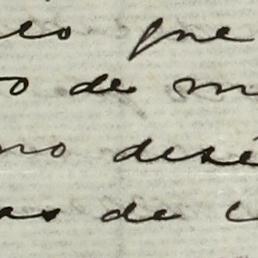 eo que
o de m
no desé
as de c